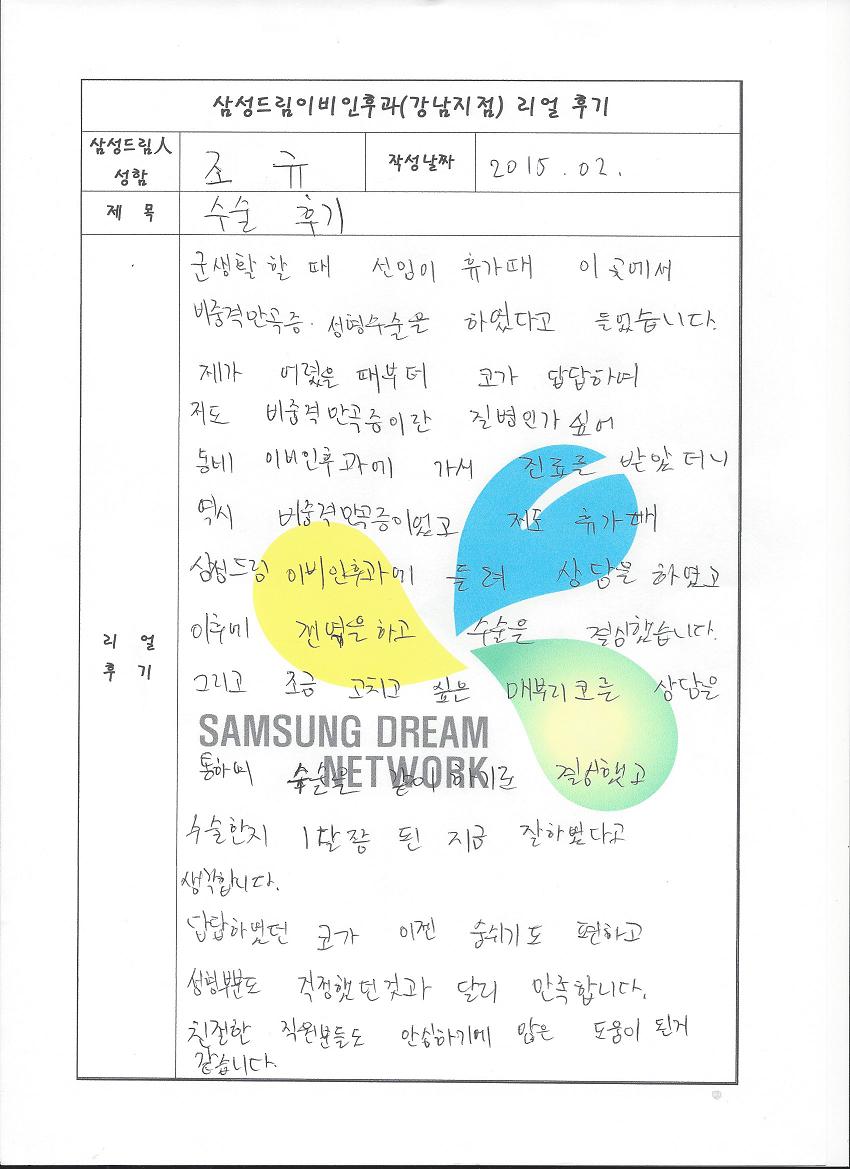 삼성드림이비인후과(강남지점) 리얼 후기
삼성드림人 성함 조 규 작성날짜 2015.02.
제 목 수술 후기
리 얼 후 기
군생활할 때 선임이 휴가때 이 곳에서
비중격만곡증·성형수술을 하였다고 들었습니다.
제가 어렸을 때부터 코가 답답하여
저도 비중격만곡증이란 질병인가 싶어
동네 이비인후과에 가서 진료를 받았더니
역시 비중격만곡증이었고 저도 휴가때
삼성드림 이비인후과에 들려 상담을 하였고
이후에 전역을 하고 수술을 결심했습니다.
그리고 조금 고치고 싶은 매부리코를 상담을
SAMSUNG DREAM
NETWORK
통하며 수술을 같이 하기로 결심했고
수술한지 1달쯤 된 지금 잘하였다고
생각합니다.
답답하였던 코가 이젠 숨쉬기도 편하고
성형부분도 걱정했던것과 달리 만족합니다.
친절한 직원분들도 안심하기에 많은 도움이 된거
같습니다.